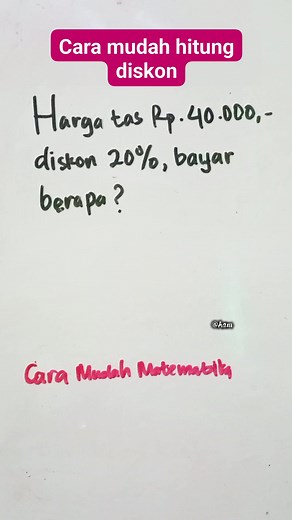 Cara mudah hitung
diskon
Harga tas Rp.40.000,-
diskon 20%, bayar
berapa?
@Aani
Cara Mudah Matematika